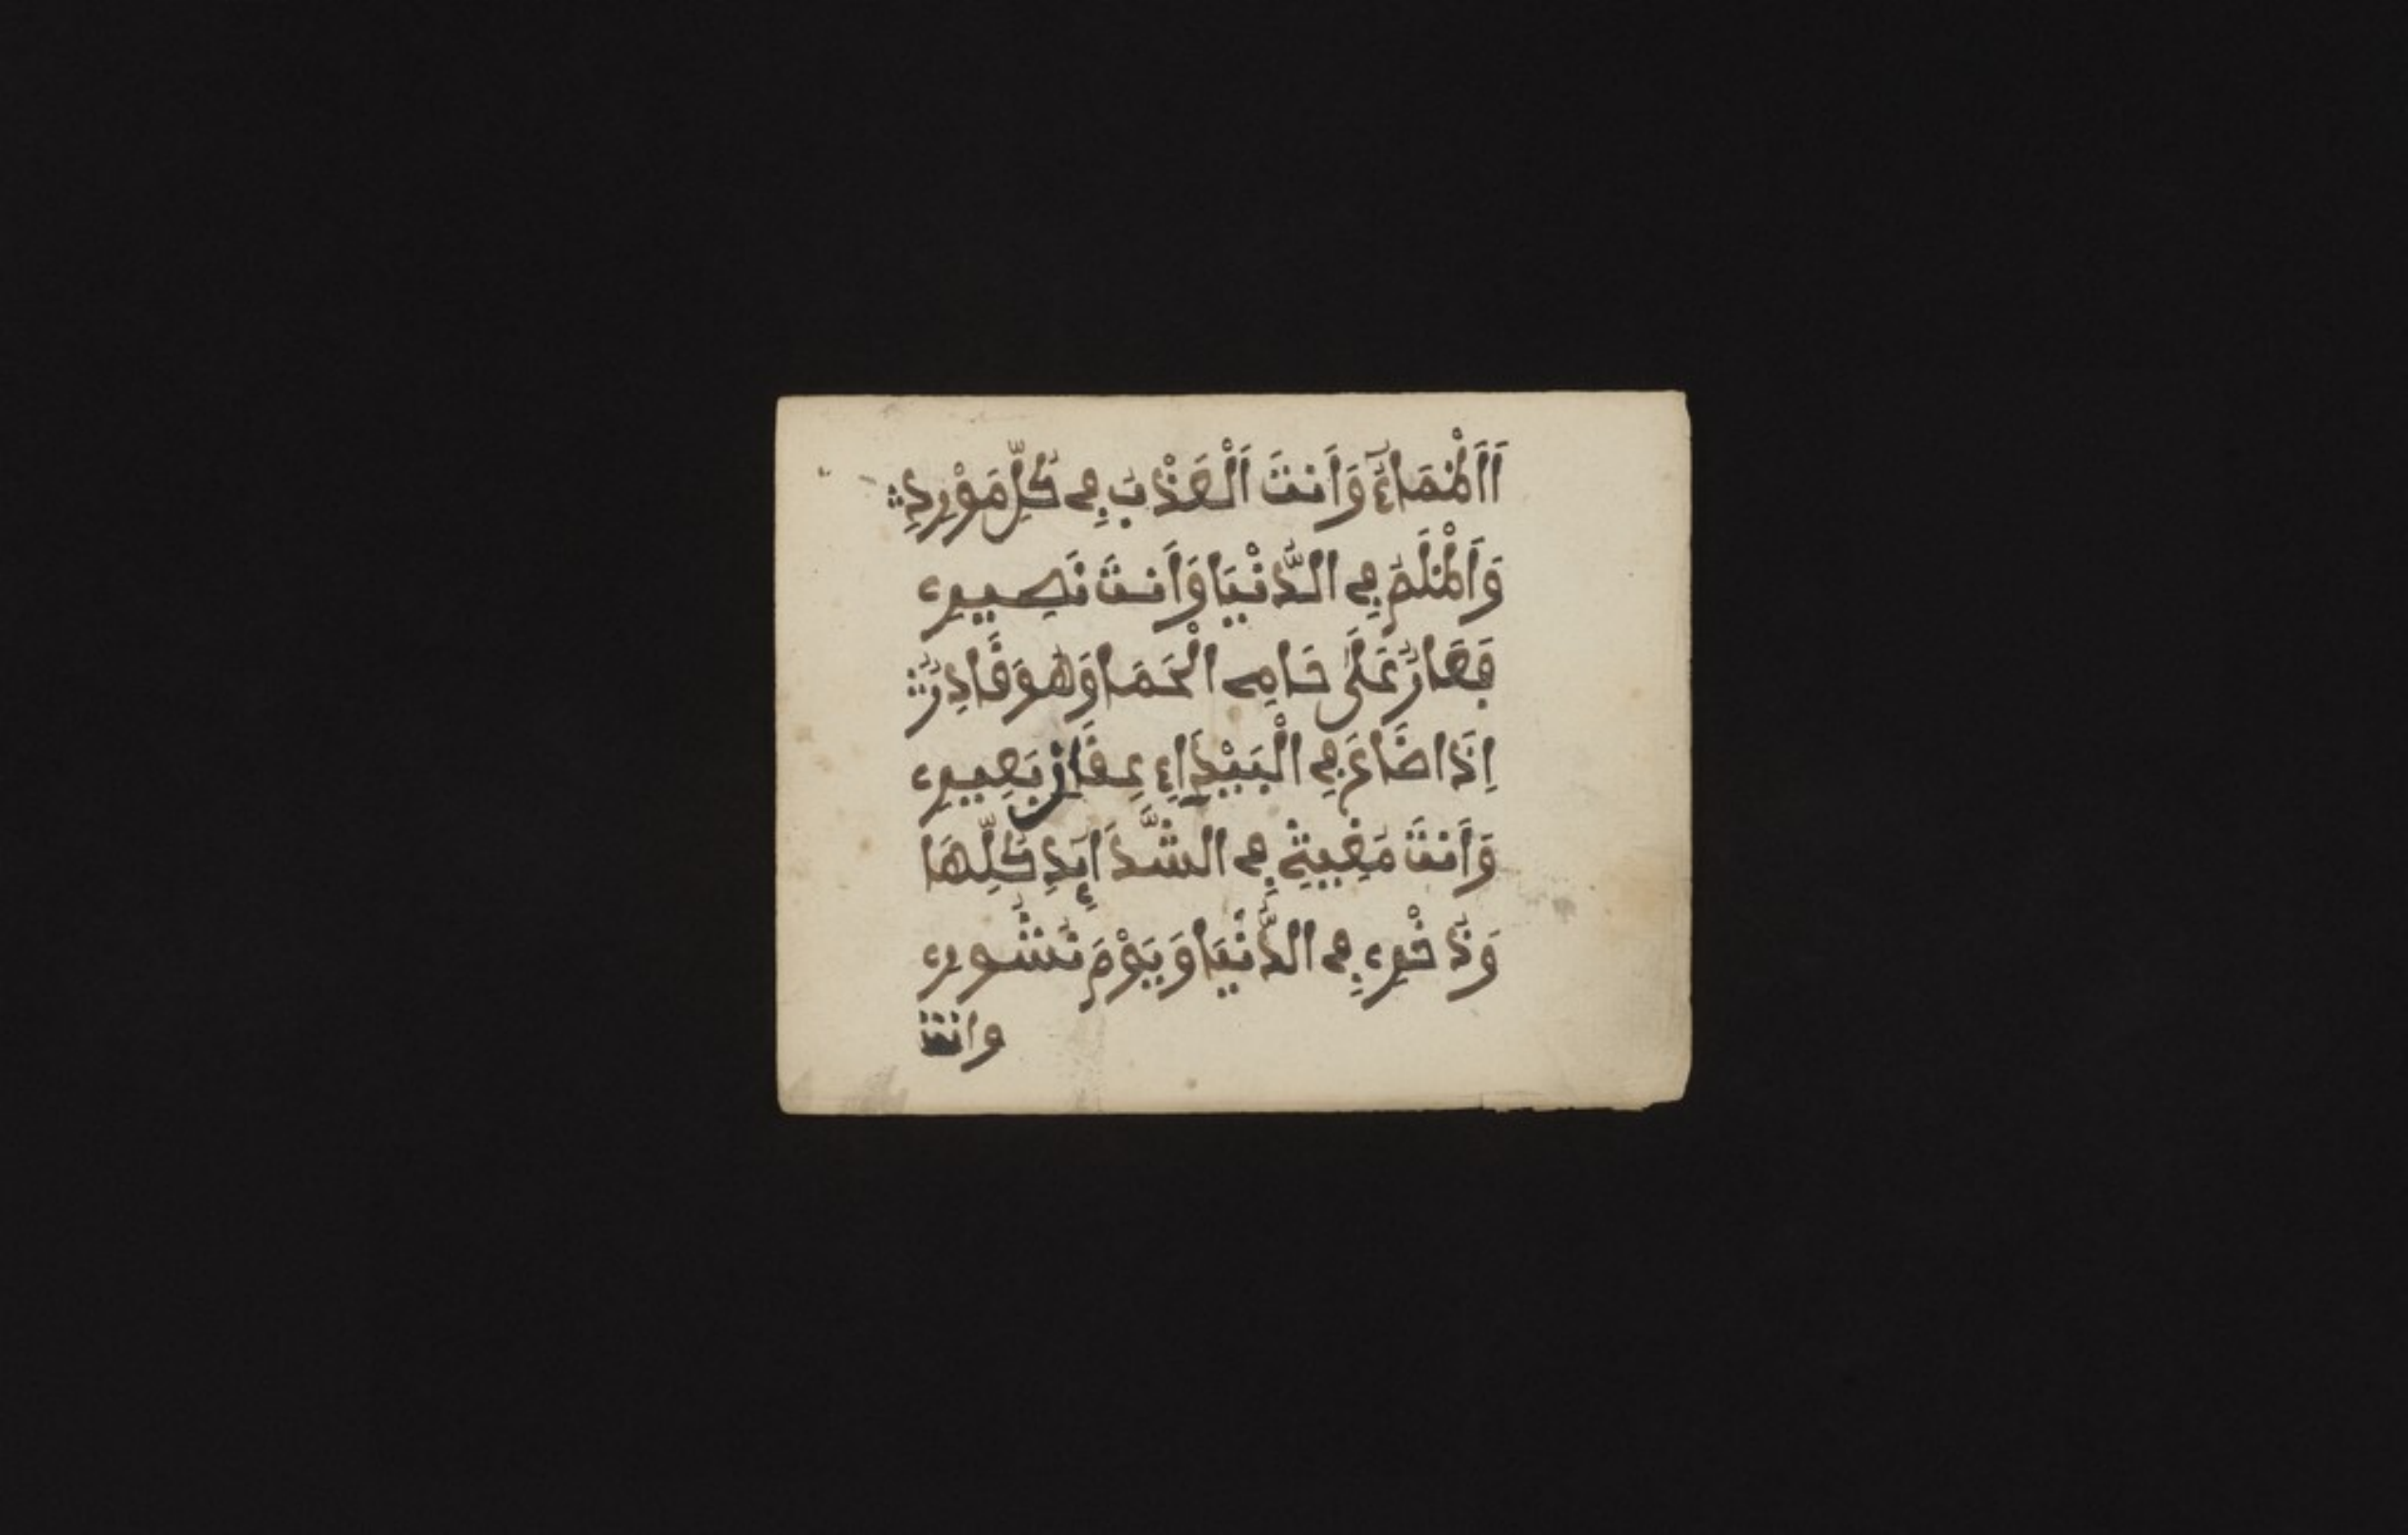 اَاَلْمَمَاءُ وَاَنتَ اَلْعَذْبُ فِي كُلِّ مَوْرِدِ
وَاَلْمْلَمُ فِي الدُّنْيَا وَاَنتَ نَصِيرِي
فَعَارٌ عَلَى حَامِي الْحَمَا وَهُوَ قَادِرٌ
اِذَا ضَاعَ فِي الْبَيْدَاءِ عِقَالُ بَعِيرِي
وَاَنتَ مُغِيثِي فِي الشَّدَايِدِ كُلِّهَا
وَذُخْرِي فِي الدُّنْيَا وَيَوْمَ نُشُورِي
وانت